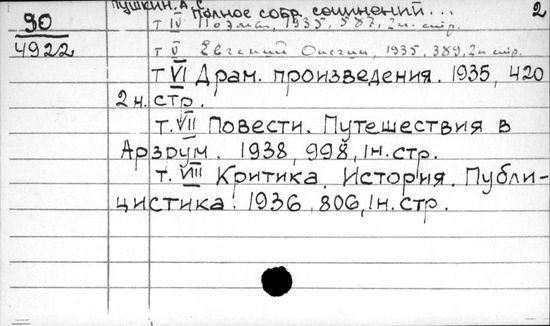 Пушкин. А. С. 2
90 Полное собр. сочинений...
т IV Поэмы, 1935, 587, 2н. стр.
4922 т V Евгений Онегин, 1935, 389, 2н стр.
т VI Драм. произведения. 1935, 420
2 н. стр.
т. VII Повести. Путешествия в
Арзрум. 1938, 998, 1н. стр.
т. VIII Критика. История. Публи-
цистика. 1936, 806, 1н. стр.